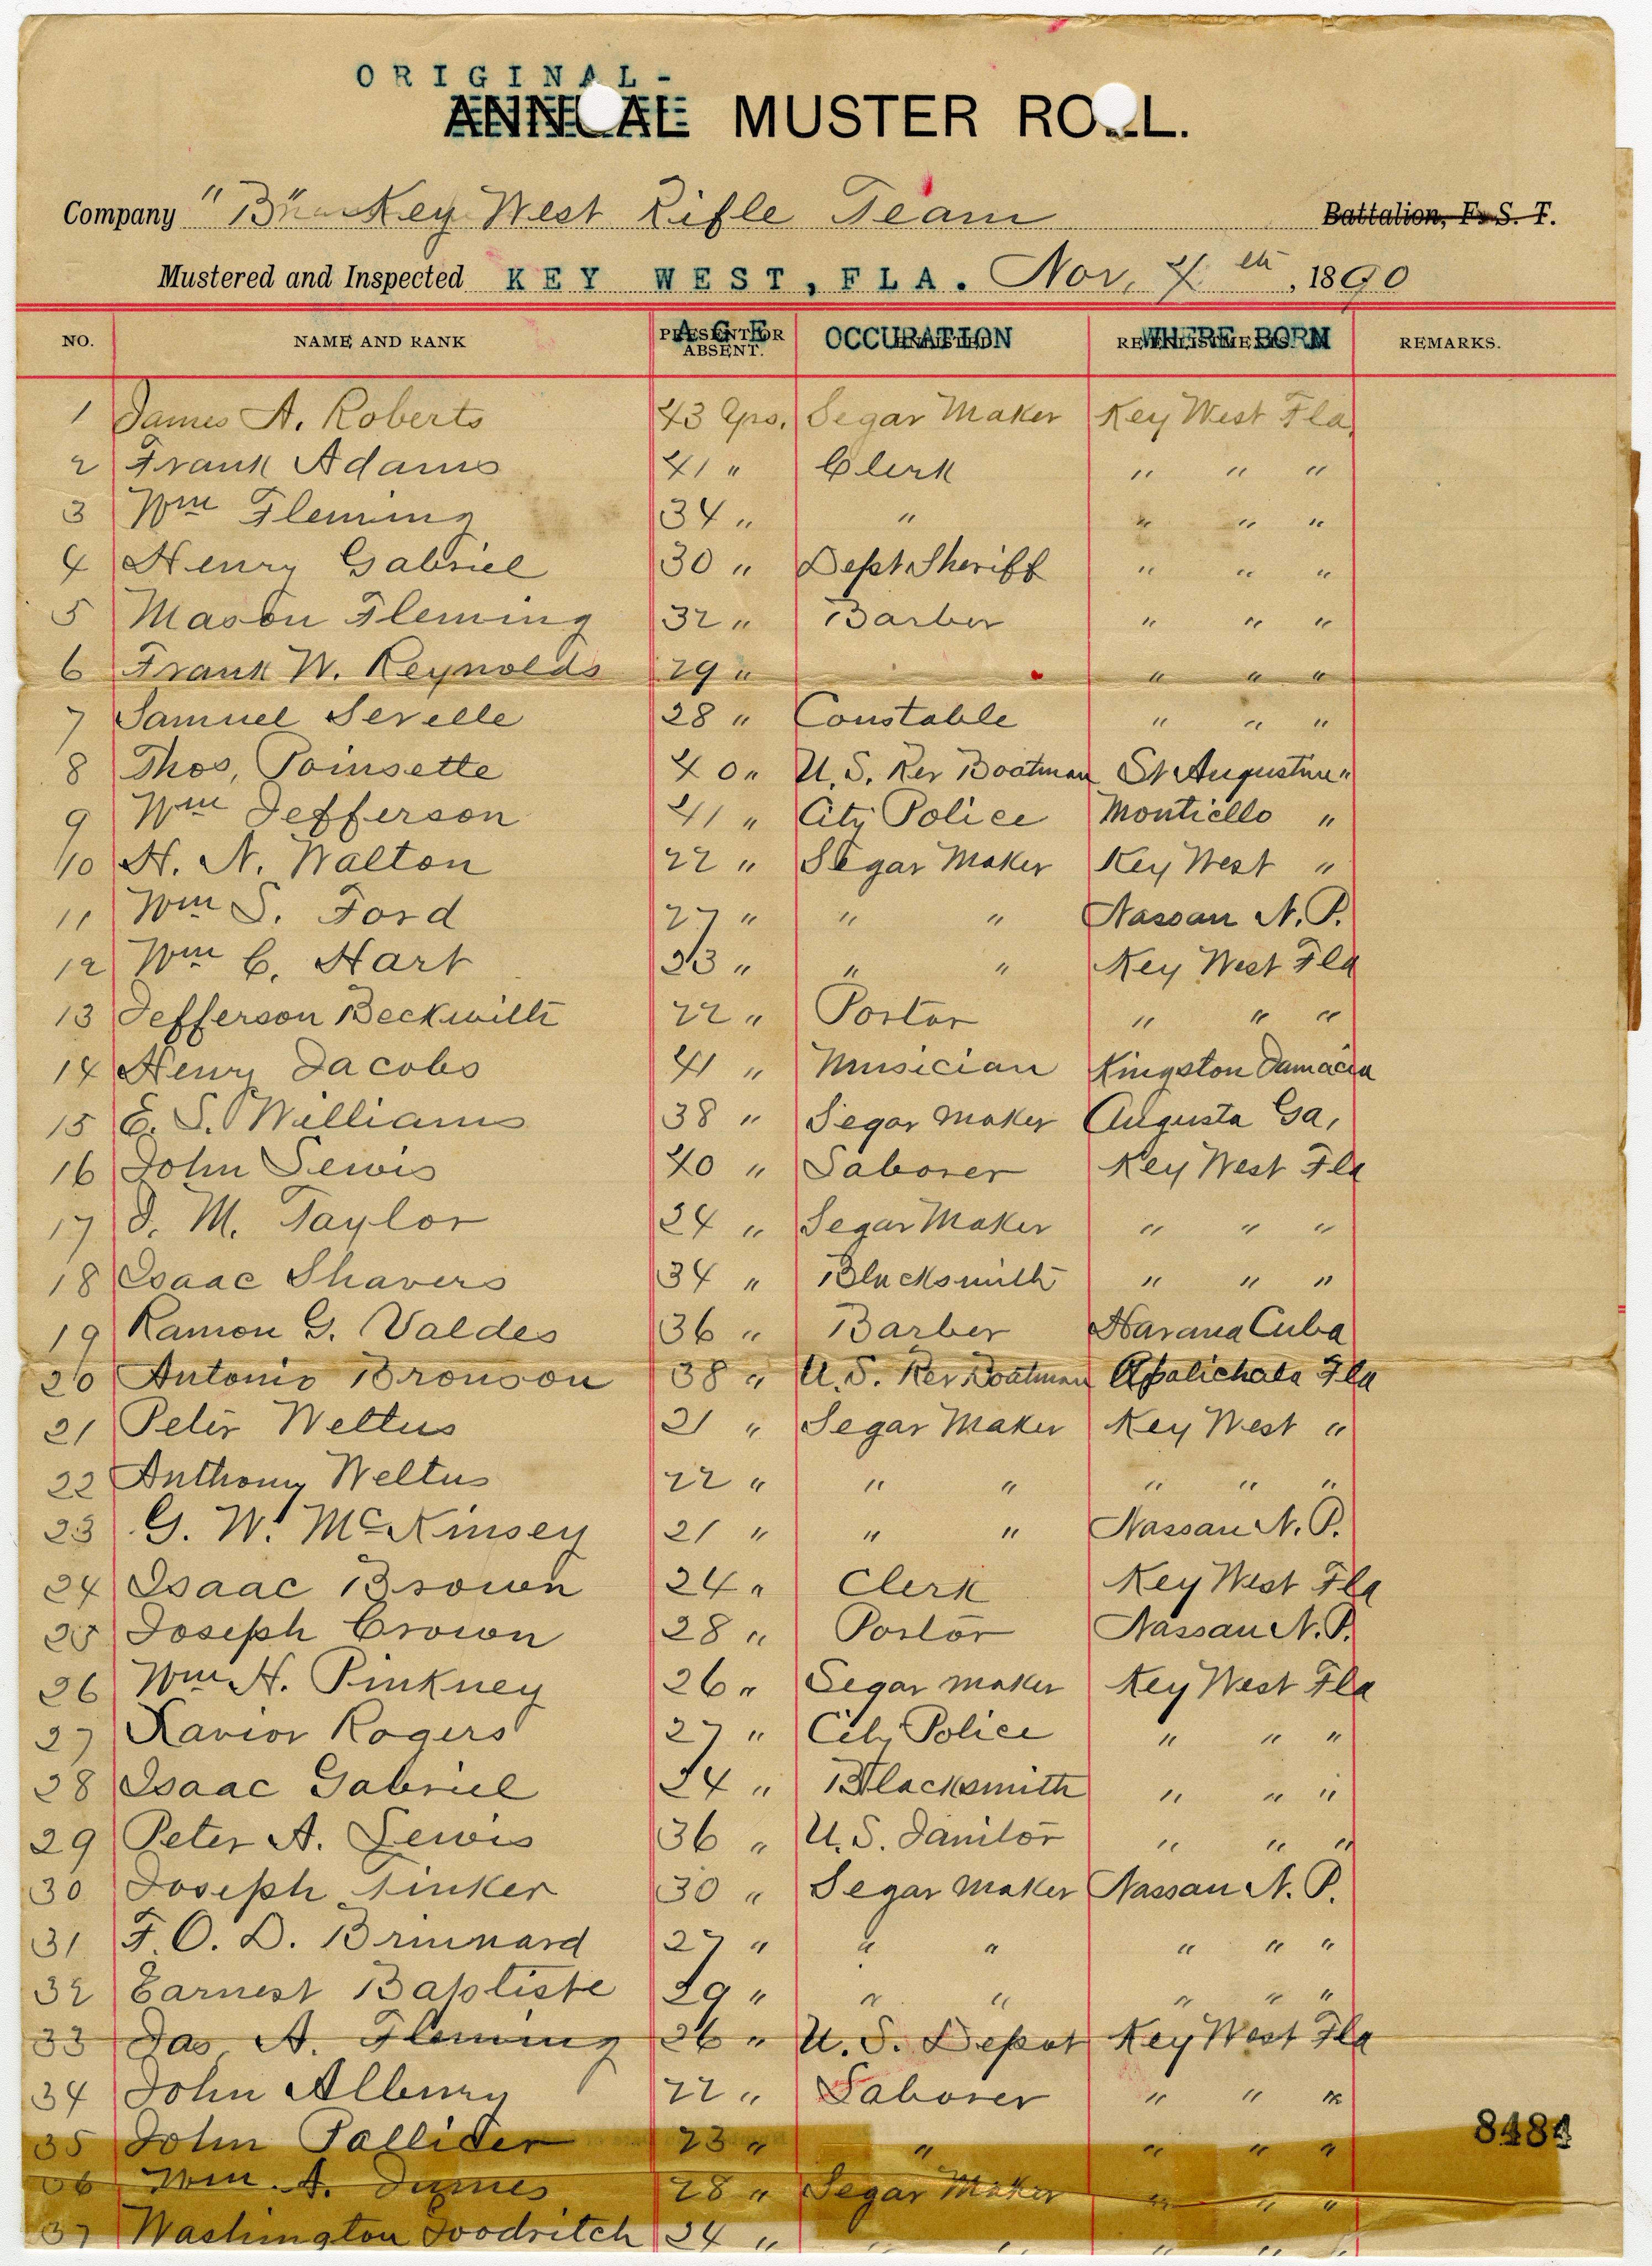 ORIGINAL-
ANNUAL MUSTER ROLL.
Company "B" Key West Rifle Team Battalion, F. S. T.
Mustered and Inspected KEY WEST, FLA. Nov. 4th, 1890
NO. NAME AND RANK AGE OCCUPATION WHERE BORN REMARKS.
1 James A. Roberts 43 Yrs. Segar Maker Key West Fla
2 Frank Adams 41 " Clerk " " "
3 Wm Fleming 34 " " " " "
4 Henry Gabriel 30 " Dept Sheriff " " "
5 Mason Fleming 32 " Barber " " "
6 Frank W. Reynolds 29 " " " "
7 Samuel Serelle 28 " Constable " " "
8 Thos, Poinsette 40 " U. S. Rev Boatman St Augustine "
9 Wm Jefferson 41 " City Police Monticello "
10 H. N. Walton 22 " Segar Maker Key West "
11 Wm S. Ford 27 " " " Nassau N. P.
12 Wm C. Hart 33 " " " Key West Fla
13 Jefferson Beckwith 22 " Portor " " "
14 Henry Jacobs 41 " Musician Kingston Jamacia
15 E. S. Williams 38 " Segar Maker Augusta Ga,
16 John Lewis 40 " Laborer Key West Fla
17 J. M. Taylor 24 " Segar Maker " " "
18 Isaac Shavers 34 " Blacksmith " " "
19 Ramon G. Valdes 36 " Barber Havana Cuba
20 Antonio Bronson 38 " U. S. Rev Boatman Apalichala Fla
21 Peter Weltus 21 " Segar Maker Key West "
22 Anthony Weltus 22 " " " " " "
23 G. W. McKinsey 21 " " " Nassau N. P.
24 Isaac Brown 24 " Clerk Key West Fla
25 Joseph Crown 28 " Portor Nassau N. P.
26 Wm H. Pinkney 26 " Segar Maker Key West Fla
27 Xavior Rogers 27 " City Police " " "
28 Isaac Gabriel 24 " Blacksmith " " "
29 Peter A. Lewis 36 " U. S. Janitor " " "
30 Joseph Tinker 30 " Segar Maker Nassau N. P.
31 F. O. D. Brinnard 27 " " " " " "
32 Earnest Baptiste 29 " " " " " "
33 Jas A. Fleming 26 " U. S. Depot Key West Fla
34 John Albury 22 " Laborer " " "
35 John Pallider 23 " " " " "
36 Wm. A. 28 " Segar Maker " " "
37 Washington Goodritch 24 " " " " " "
8484